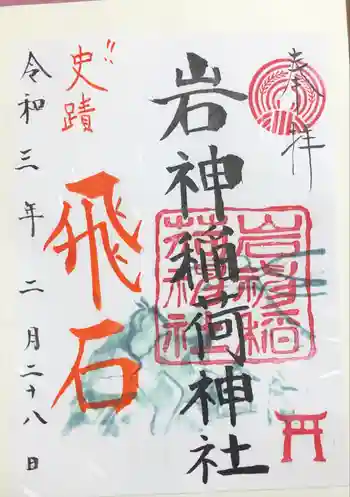 奉拝
岩神稲荷神社
史蹟
飛石
令和三年二月二十八日
岩神稲荷神社